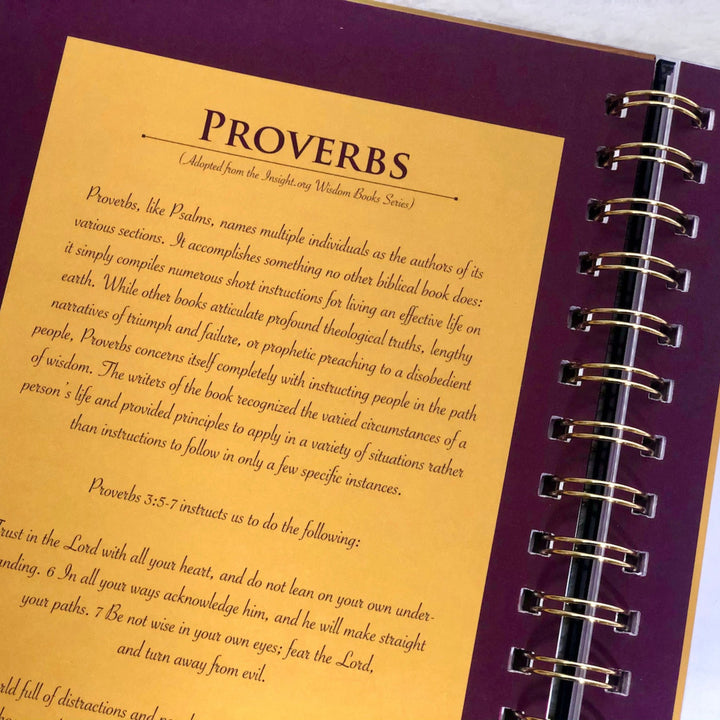 PROVERBS
(Adopted from the Insight.org Wisdom Books Series)
Proverbs, like Psalms, names multiple individuals as the authors of its
various sections. It accomplishes something no other biblical book does:
it simply compiles numerous short instructions for living an effective life on
earth. While other books articulate profound theological truths, lengthy
narratives of triumph and failure, or prophetic preaching to a disobedient
people, Proverbs concerns itself completely with instructing people in the path
of wisdom. The writers of the book recognized the varied circumstances of a
person's life and provided principles to apply in a variety of situations rather
than instructions to follow in only a few specific instances.
Proverbs 3:5-7 instructs us to do the following:
Trust in the Lord with all your heart, and do not lean on your own under-
anding. 6 In all your ways acknowledge him, and he will make straight
your paths. 7 Be not wise in your own eyes; fear the Lord,
and turn away from evil.
rld full of distractions and